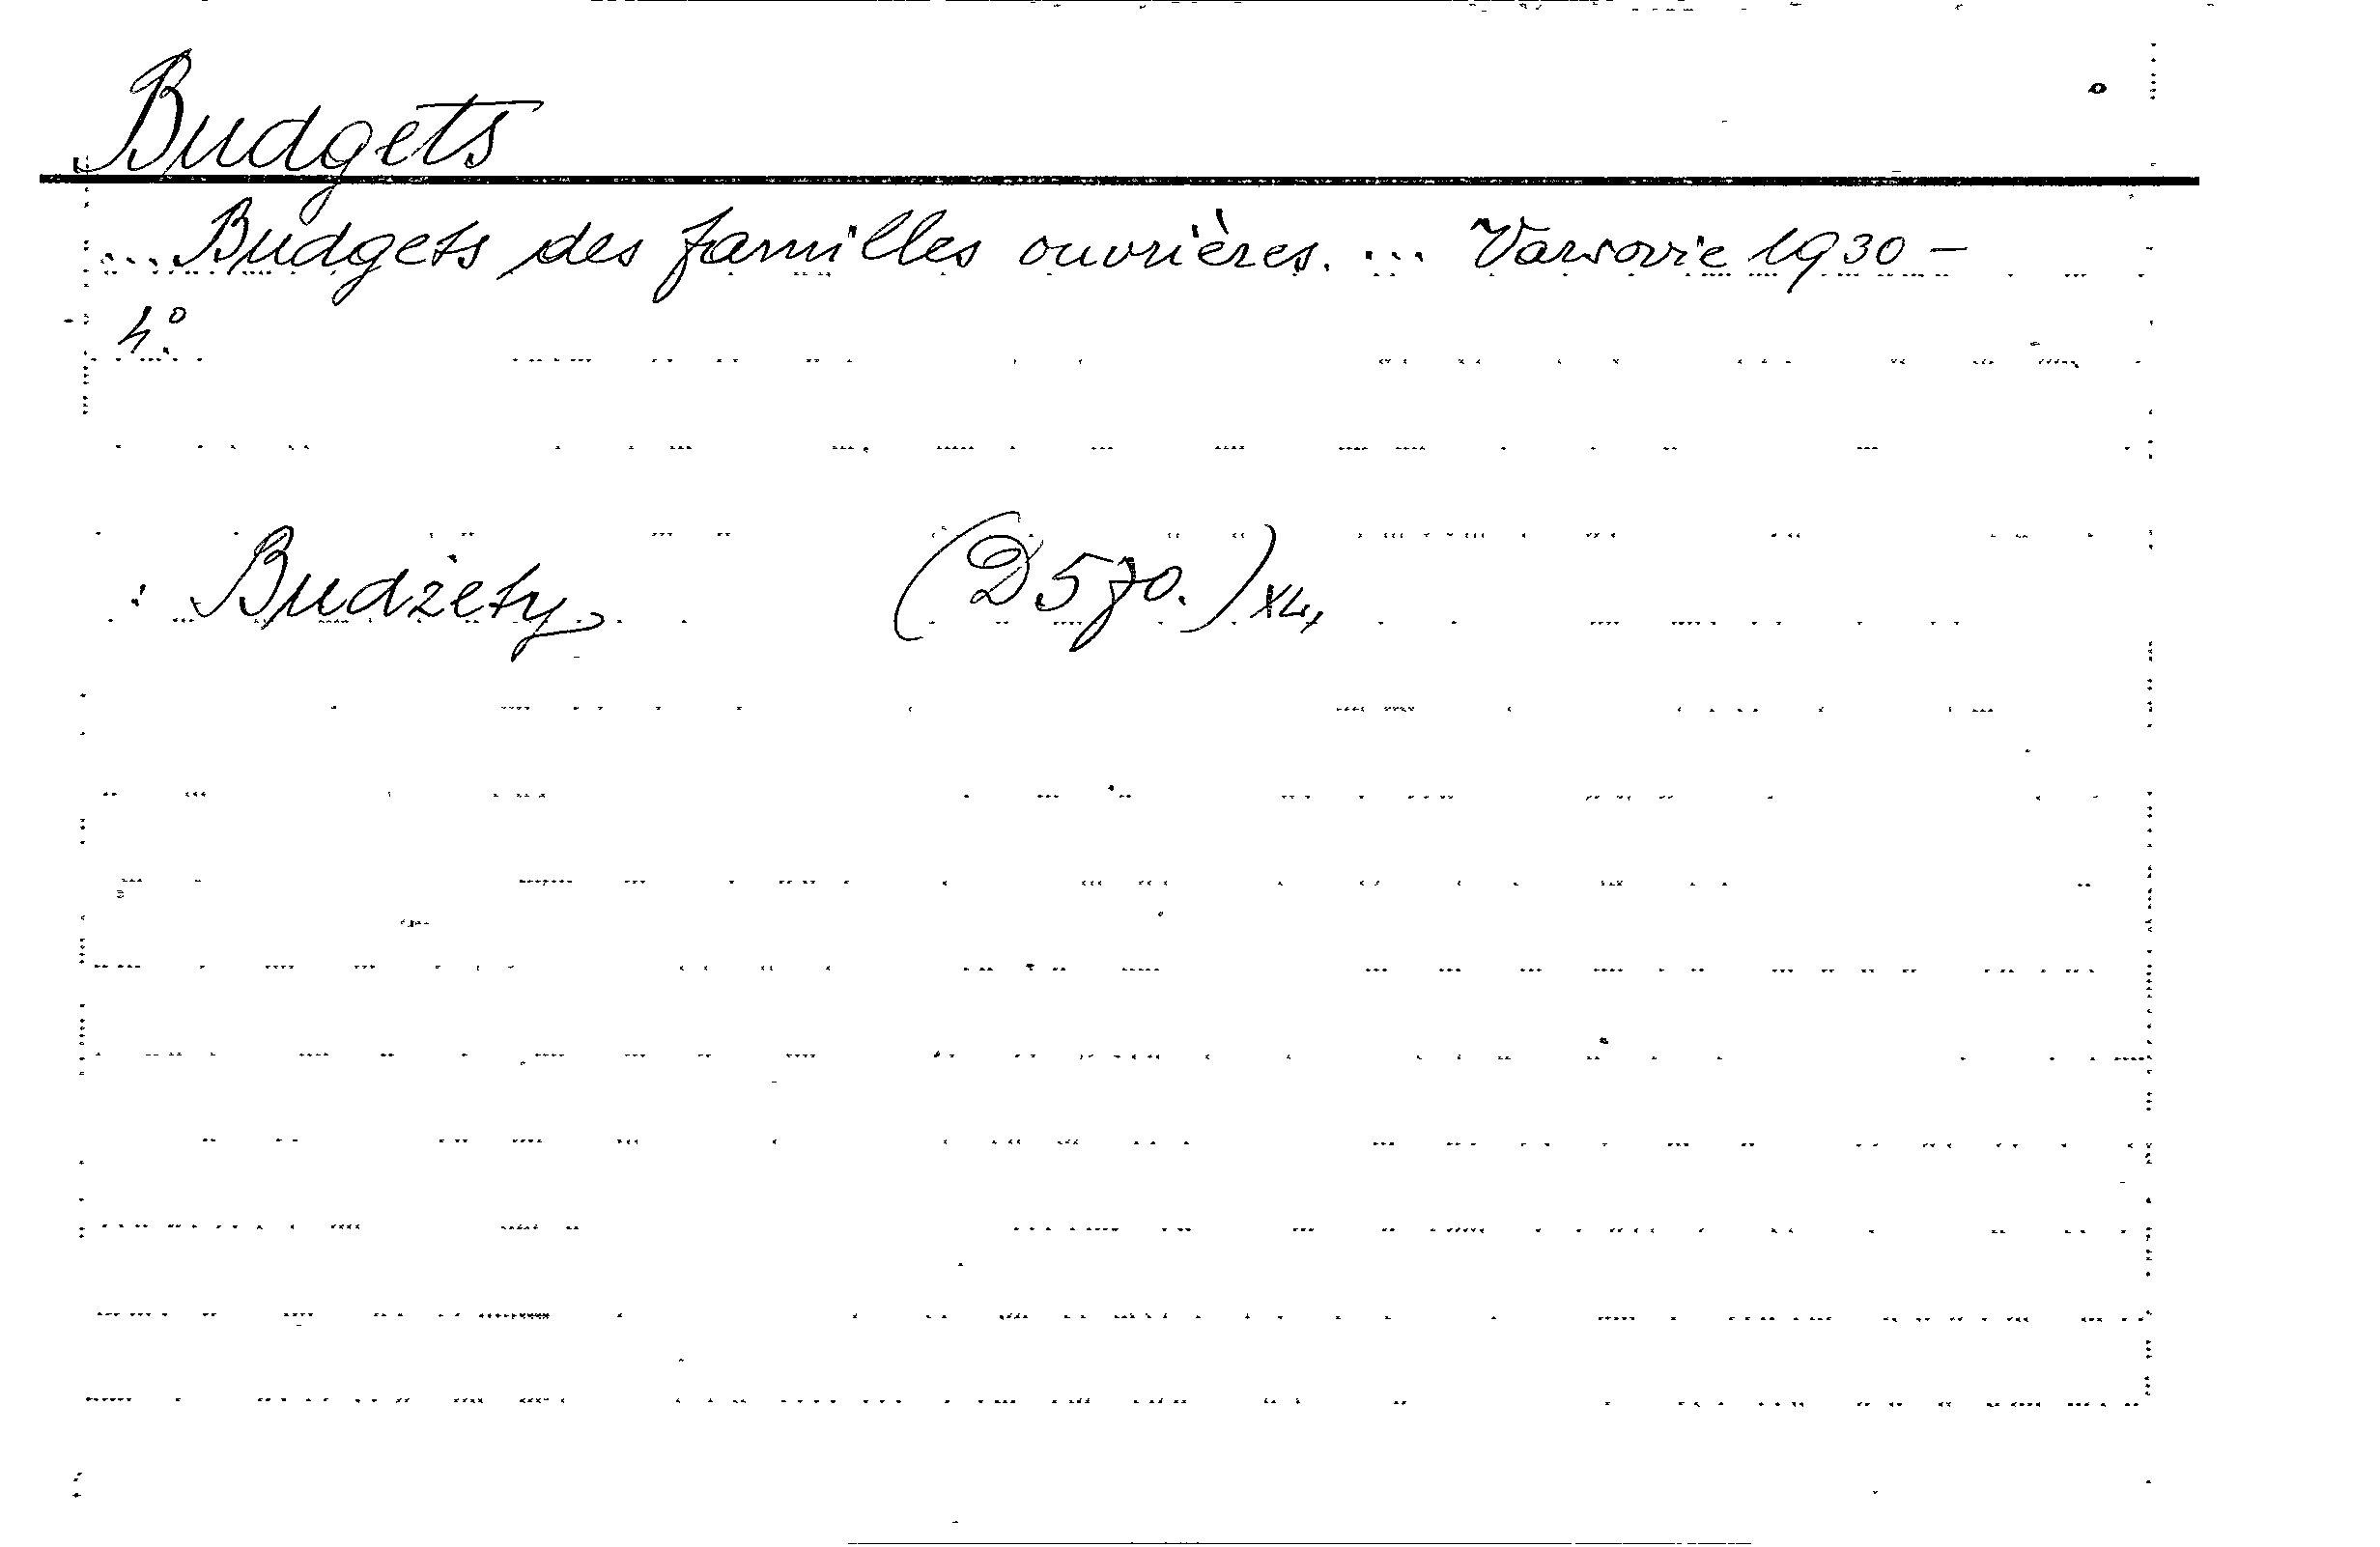 Budgets
... Budgets des familles ouvrières. ... Varsovie 1930 —
4°.
: Budżety (D 570.)